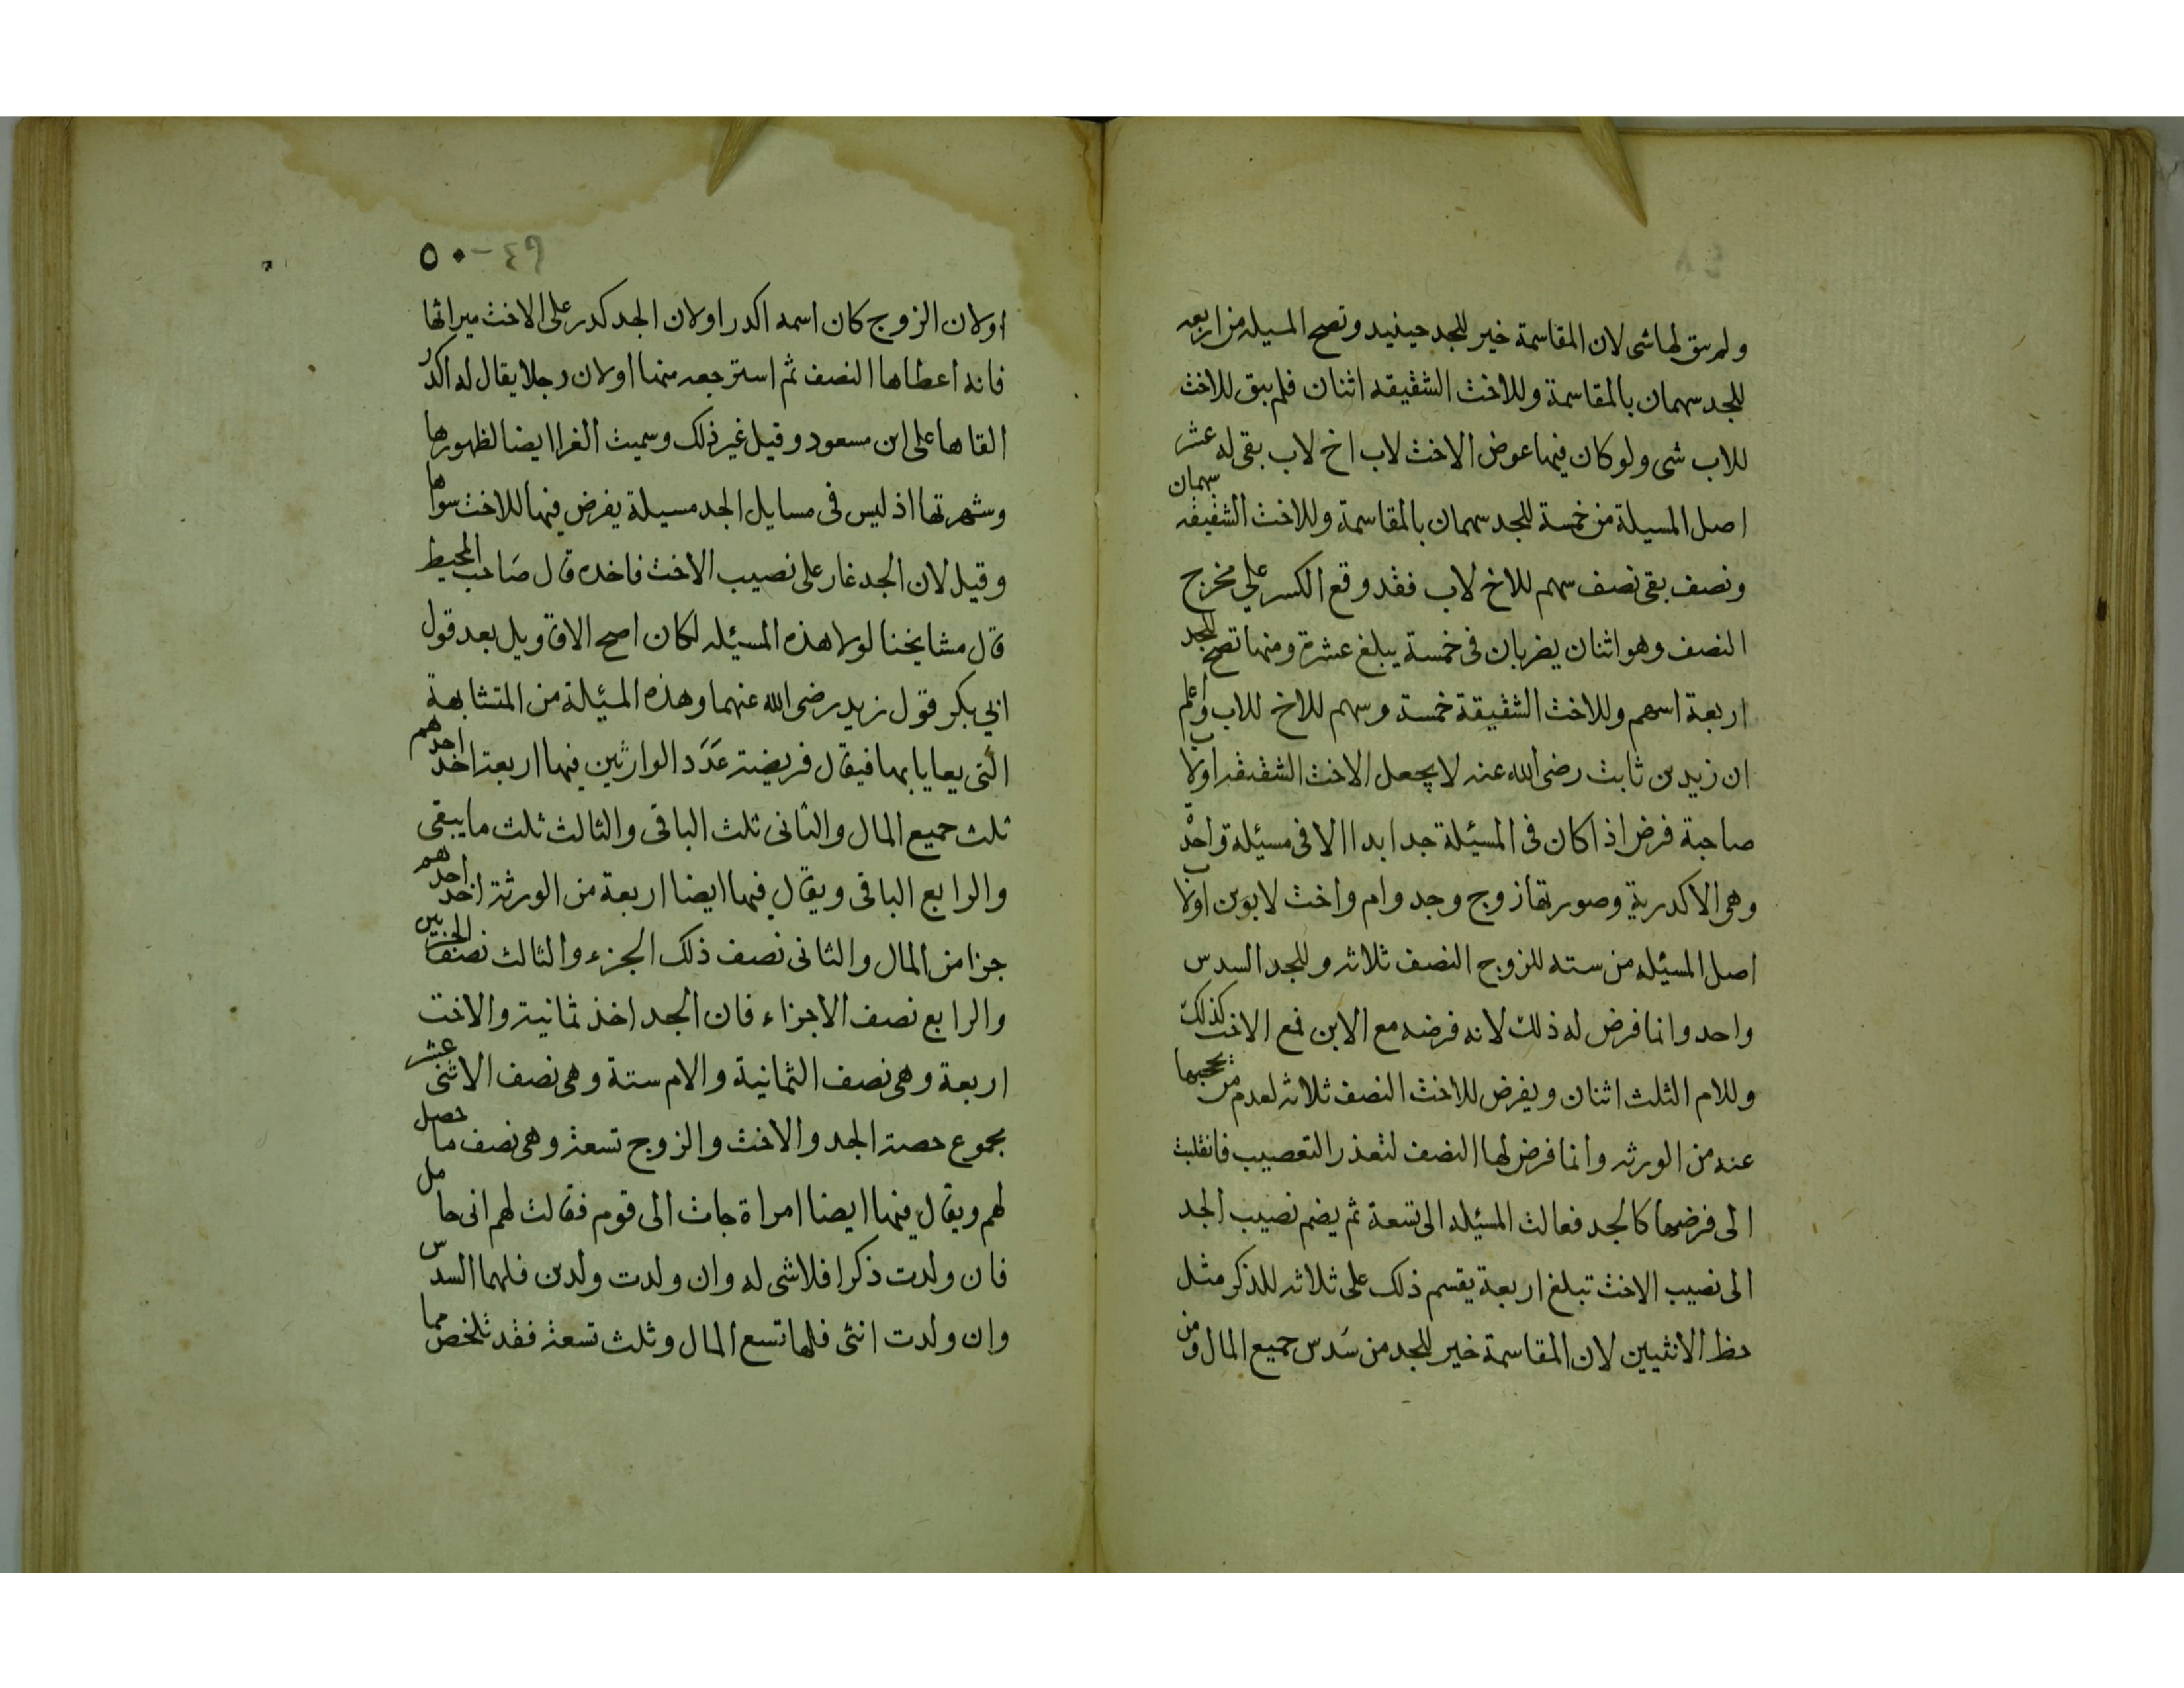 ولم يبق لها شى لان المقاسمة خير للجد حينيد وتصح المسيله من اربعه
للجد سهمان بالمقاسمة وللاخت الشقيقه اثنان فلم يبق للاخت
للاب شى ولو كان فيها عوض الاخت لاب اخ لاب بقى له عشر
اصل المسيلة من خمسة للجد سهمان بالمقاسمة وللاخت الشقيقه سهمان
ونصف بقى نصف سهم للاخ لاب فقد وقع الكسر على مخرج
النصف وهو اثنان يضربان فى خمسة يبلغ عشرة ومنها تصح للجد
اربعة اسهم وللاخت الشقيقة خمسة وسهم للاخ للاب واعلم
ان زيد بن ثابت رضى الله عنه لا يجعل الاخت الشقيقه اولاب
صاحبة فرض اذا كان فى المسيئلة جد ابدا الا فى مسيئلة واحدة
وهى الاكدرية وصورتها زوج وجد وام واخت لابوين اولاب
اصل المسيئله من سته للزوج النصف ثلاثه وللجد السدس
واحد وانما فرض له ذلك لانه فرضه مع الابن فمع الاخت كذلك
وللام الثلث اثنان ويفرض للاخت النصف ثلاثه لعدم من يحجبها
عنه من الورثه وانما فرض لها النصف لتعذر التعصيب فانقلبت
الى فرضها كالجد فعالت المسيئله الى تسعة ثم يضم نصيب الجد
الى نصيب الاخت تبلغ اربعة يقسم ذلك على ثلاثه للذكر مثل
حظ الانثيين لان المقاسمة خير للجد من سدس جميع المال ومن
٤٩-٥٠
اولان الزوج كان اسمه اكدر اولان الجد كدر على الاخت ميراثها
فانه اعطاها النصف ثم استرجعه منها اولان رجلا يقال له اكدر
القاها على ابن مسعود وقيل غير ذلك وسميت الغرا ايضا لظهورها
وشهرتها اذ ليس فى مسايل الجد مسيلة يفرض فيها للاخت سواها
وقيل لان الجد غار على نصيب الاخت فاخده قال صاحب المحيط
قال مشايخنا لولا هذه المسيئله لكان اصح الاقاويل بعد قول
ابي بكر قول زيد رضى الله عنهما وهذه المسيئلة من المتشابهة
التى يعايا بها فيقال فريضة عدد الوارثين فيها اربعة اخد احدهم
ثلث جميع المال والثانى ثلث الباقى والثالث ثلث ما يبقى
والرابع الباقى ويقال فيها ايضا اربعة من الورثة اخد احدهم
جزا من المال والثانى نصف ذلك الجزء والثالث نصف الجزيين
والرابع نصف الاجزاء فان الجد اخذ ثمانية والاخت
اربعة وهى نصف الثمانية والام ستة وهى نصف الاثنى عشر
مجموع حصة الجد والاخت والزوج تسعة وهى نصف ما حصل
لهم ويقال فيها ايضا امراة جات الى قوم فقالت لهم انى حامل
فان ولدت ذكرا فلا شى له وان ولدت ولدين فلهما السدس
وان ولدت انثى فلها تسع المال وثلث تسعة فقد تلخص مما